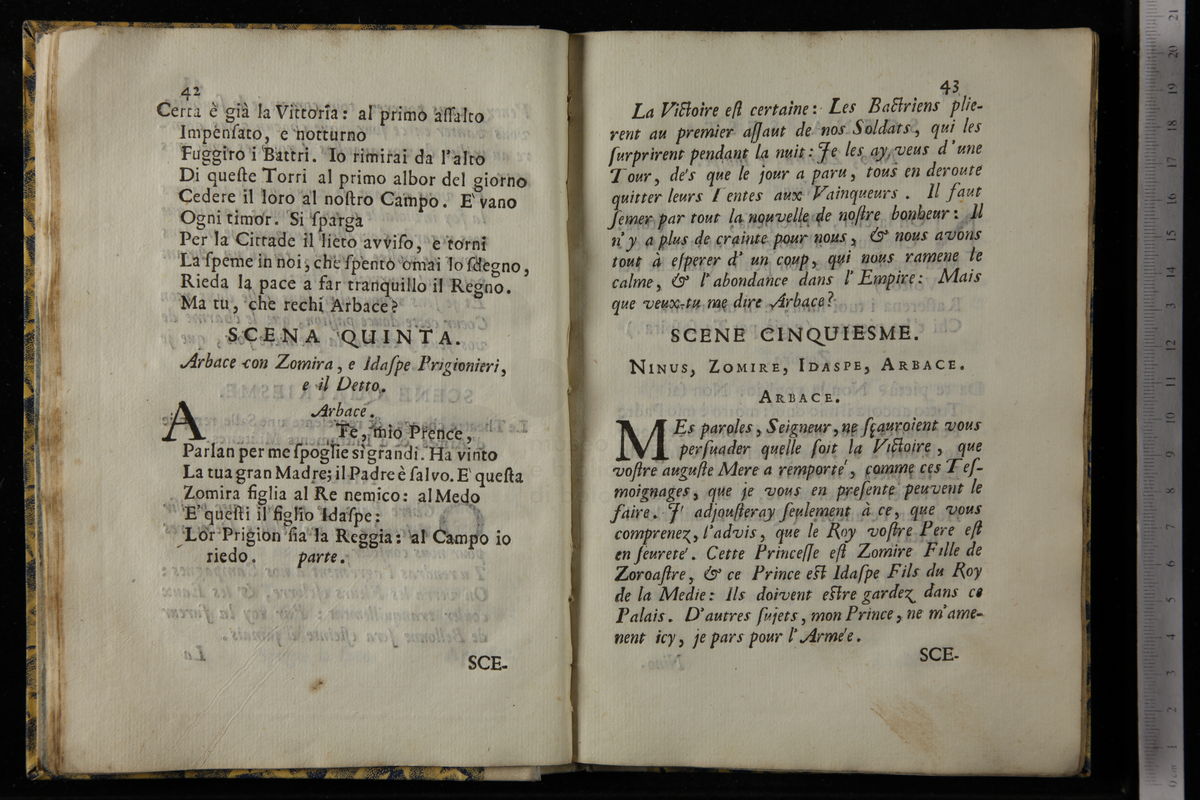 42
Certa è già la Vittoria: al primo aſſalto
Impenſato, e notturno
Fuggiro i Battri. Io rimirai da l'alto
Di queſte Torri al primo albor del giorno
Cedere il loro al noſtro Campo. E' vano
Ogni timor. Si ſparga
Per la Cittade il lieto avviſo, e torni
La ſpeme in noi; che ſpento omai lo ſdegno,
Rieda la pace a far tranquillo il Regno.
Ma tu, che rechi Arbace?
SCENA QUINTA.
Arbace con Zomira, e Idaſpe Prigionieri,
e il Detto.
Arbace.
A Te, mio Prence,
Parlan per me ſpoglie sì grandi. Ha vinto
La tua gran Madre; il Padre è ſalvo. E' queſta
Zomira figlia al Re nemico: al Medo
E' queſti il figlio Idaſpe:
Lor Prigion ſia la Reggia: al Campo io
riedo. parte.
SCE-
43
La Victoire eſt certaine: Les Bactriens plie-
rent au premier aſſaut de nos Soldats, qui les
ſurprirent pendant la nuit: Je les ay veus d'une
Tour, dés que le jour a paru, tous en deroute
quitter leurs Tentes aux Vainqueurs. Il faut
ſemer par tout la nouvelle de noſtre bonheur: Il
n'y a plus de crainte pour nous, & nous avons
tout à eſperer d' un coup, qui nous ramene le
calme, & l' abondance dans l' Empire: Mais
que veux-tu me dire Arbace?
SCENE CINQUIESME.
NINUS, ZOMIRE, IDASPE, ARBACE.
ARBACE.
MEs paroles, Seigneur, ne ſçauroient vous
perſuader quelle ſoit la Victoire, que
voſtre auguſte Mere a remporté, comme ces Teſ-
moignages, que je vous en preſente peuvent le
faire. J' adjouſteray ſeulement à ce, que vous
comprenez, l'advis, que le Roy voſtre Pere eſt
en ſeureté. Cette Princeſſe eſt Zomire Fille de
Zoroaſtre, & ce Prince eſt Idaſpe Fils du Roy
de la Medie: Ils doivent eſtre gardez dans ce
Palais. D'autres ſujets, mon Prince, ne m'ame-
nent icy, je pars pour l' Armée.
SCE-